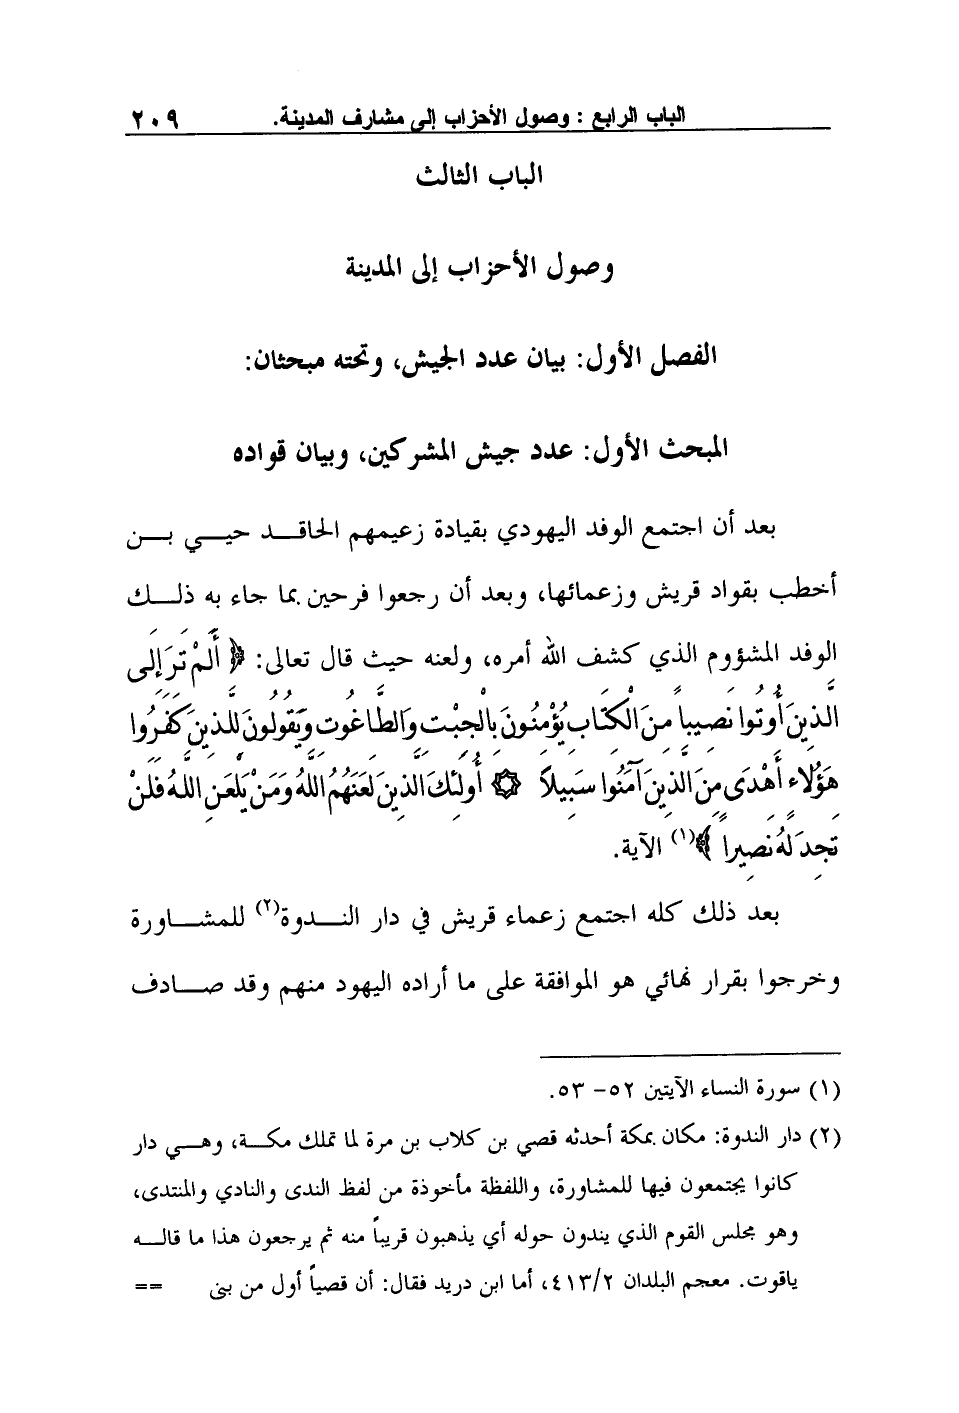 الباب الرابع : وصول الأحزاب إلى مشارف المدينة. ٢٠٩
الباب الثالث
وصول الأحزاب إلى المدينة
الفصل الأول: بيان عدد الجيش، وتحته مبحثان:
المبحث الأول: عدد جيش المشركين، وبيان قواده
بعد أن اجتمع الوفد اليهودي بقيادة زعيمهم الحاقد حيي بن
أخطب بقواد قريش وزعمائها، وبعد أن رجعوا فرحين بما جاء به ذلك
الوفد المشؤوم الذي كشف الله أمره، ولعنه حيث قال تعالى: ﴿ أَلَمْ تَرَ إِلَى
الَّذِينَ أُوتُوا نَصِيباً مِنَ الْكِتَابِ يُؤْمِنُونَ بِالْجِبْتِ وَالطَّاغُوتِ وَيَقُولُونَ لِلَّذِينَ كَفَرُوا
هَؤُلَاءِ أَهْدَى مِنَ الَّذِينَ آمَنُوا سَبِيلاً ۞ أُولَئِكَ الَّذِينَ لَعَنَهُمُ اللَّهُ وَمَنْ يَلْعَنِ اللَّهُ فَلَنْ
تَجِدَ لَهُ نَصِيراً ﴾(١) الآية.
بعد ذلك كله اجتمع زعماء قريش في دار الندوة(٢) للمشاورة
وخرجوا بقرار نهائي هو الموافقة على ما أراده اليهود منهم وقد صادف
(١) سورة النساء الآيتين ٥٢- ٥٣.
(٢) دار الندوة: مكان بمكة أحدثه قصي بن كلاب بن مرة لما تملك مكة، وهي دار
كانوا يجتمعون فيها للمشاورة، واللفظة مأخوذة من لفظ الندى والنادي والمنتدى،
وهو مجلس القوم الذي يندون حوله أي يذهبون قريباً منه ثم يرجعون هذا ما قاله
ياقوت. معجم البلدان ٤١٣/٢، أما ابن دريد فقال: أن قصياً أول من بنى ==